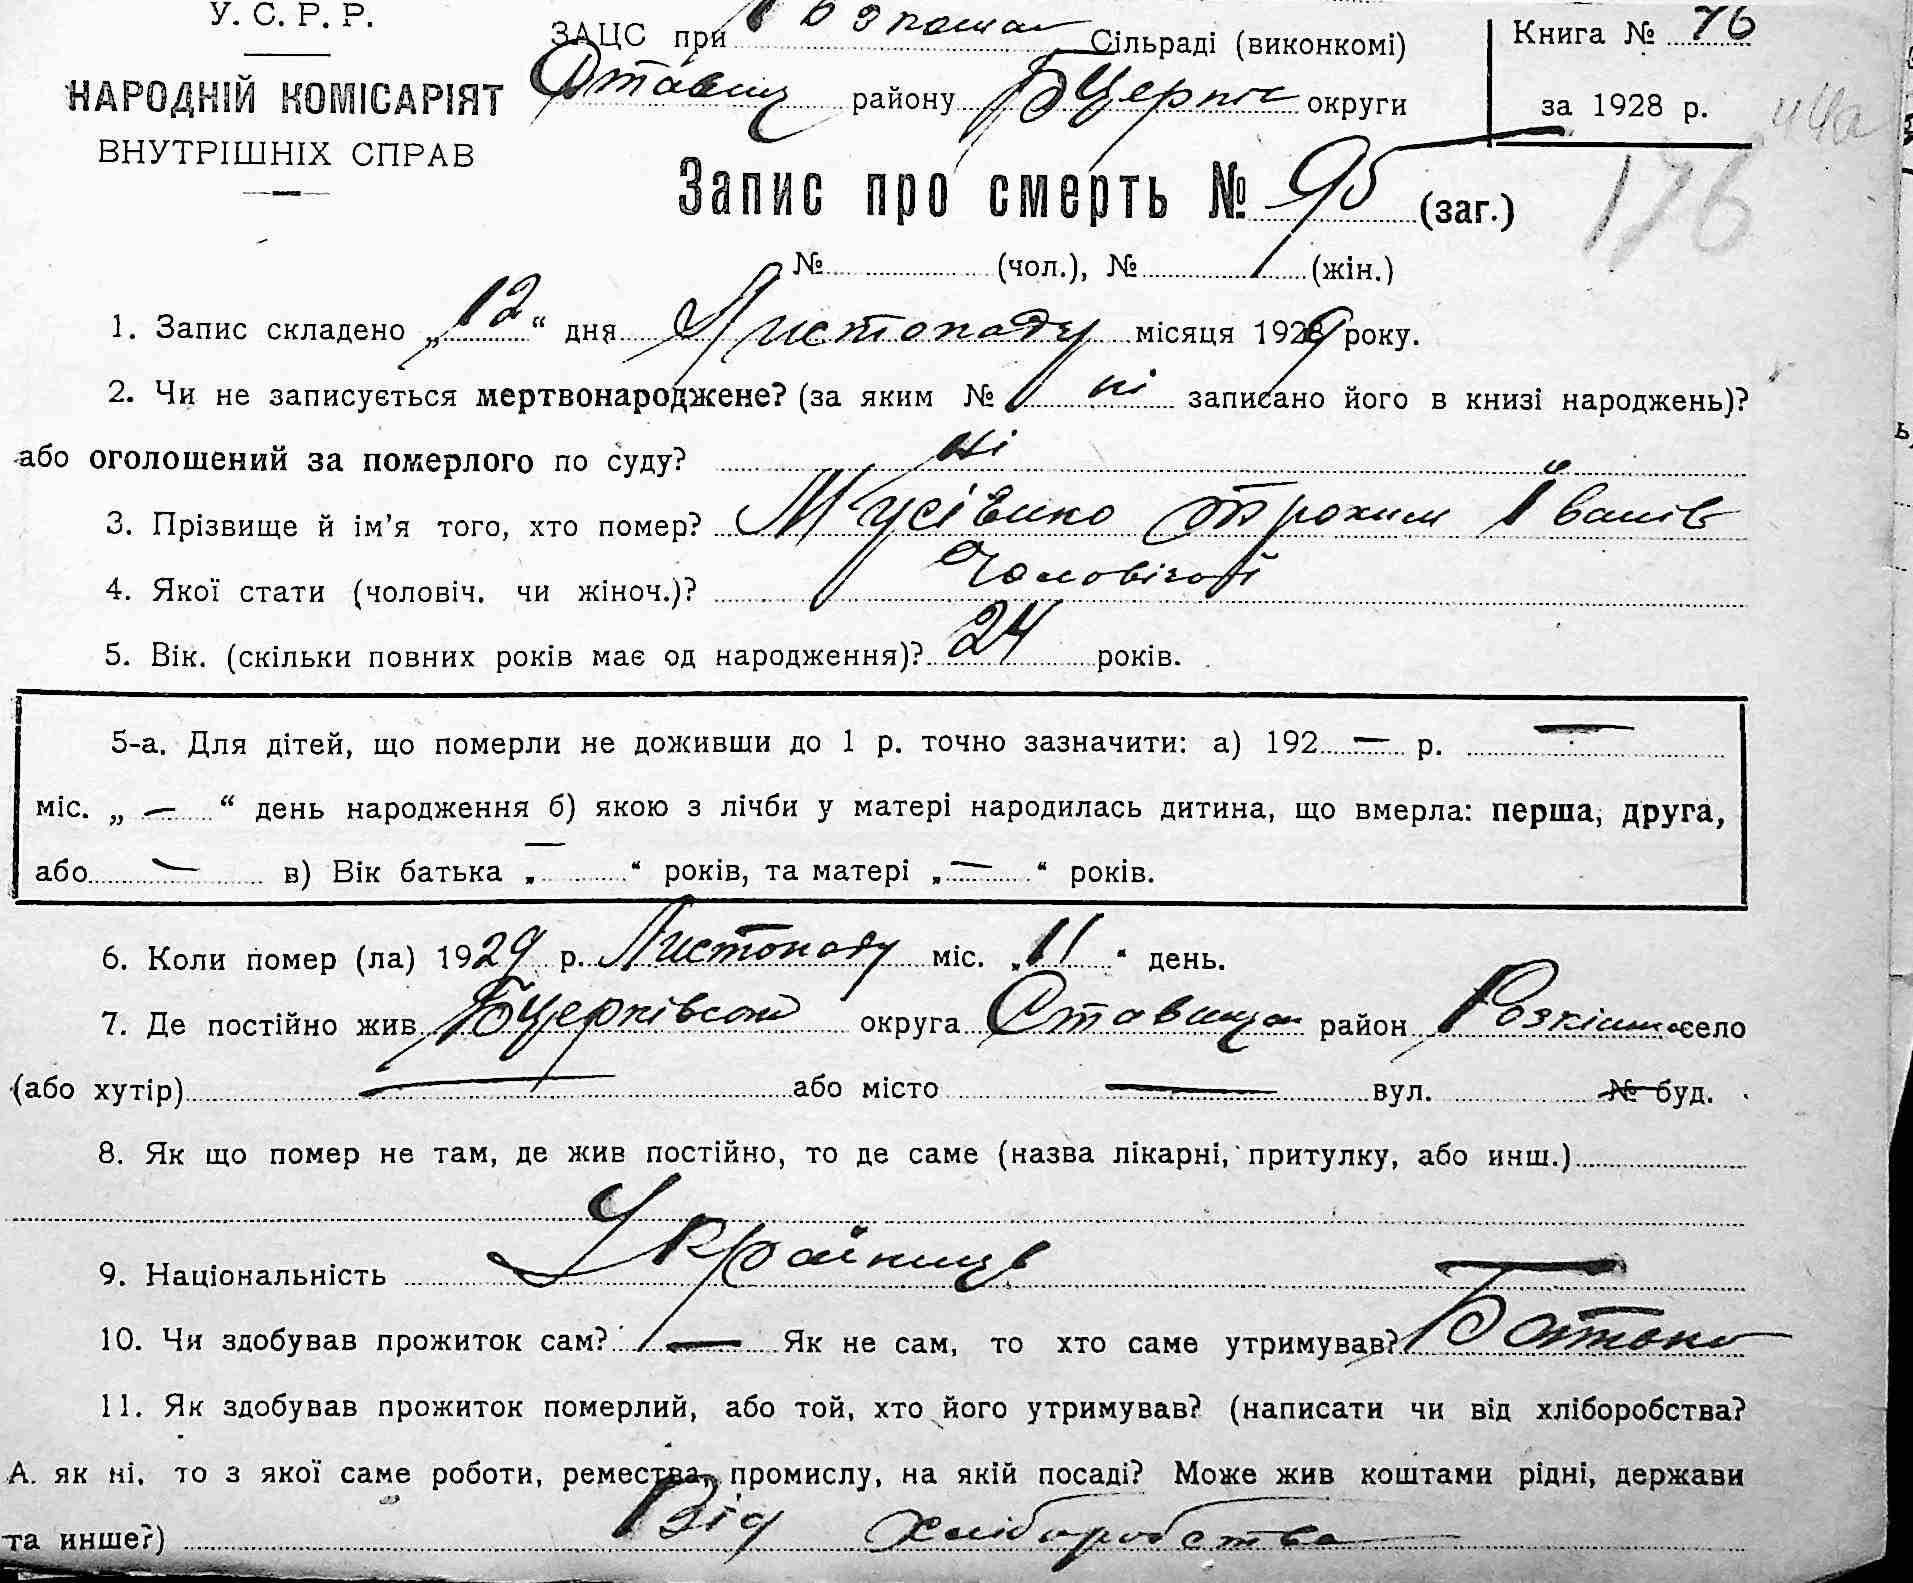 У. С. Р. Р.
НАРОДНІЙ КОМІСАРІЯТ
ВНУТРІШНІХ СПРАВ
ЗАЦС при Сільраді (виконкомі)
Ставищ району БЦеркіс округи
Книга № 76
за 1928 р.
176
Запис про смерть № 95 (заг.)
№ (чол.), № (жін.)
1. Запис складено „12“ дня Листопаду місяця 1929 року.
2. Чи не записується мертвонароджене? (за яким № ні записано його в книзі народжень)?
або оголошений за померлого по суду? ні
3. Прізвище й ім’я того, хто помер? Мусієнко Трохим Іванів
4. Якої стати (чоловіч. чи жіноч.)? Чоловічої
5. Вік. (скільки повних років має од народження)? 24 років.
5-а. Для дітей, що померли не доживши до 1 р. точно зазначити: а) 192 — р. —
міс. „ — “ день народження б) якою з лічби у матері народилась дитина, що вмерла: перша, друга,
або — в) Вік батька „ — “ років, та матері „ — “ років.
6. Коли помер (ла) 1929 р. Листопаду міс. „11“ день.
7. Де постійно жив БЦерківсько округа Ставищан район Розкішна село
(або хутір) — або місто — вул. № буд.
8. Як що помер не там, де жив постійно, то де саме (назва лікарні, притулку, або инш.)
9. Національність Українець
10. Чи здобував прожиток сам? — Як не сам, то хто саме утримував? Батько
11. Як здобував прожиток померлий, або той, хто його утримував? (написати чи від хліборобства?
А. як ні, то з якої саме роботи, ремества, промислу, на якій посаді? Може жив коштами рідні, держави
та инше?) Від хліборобства